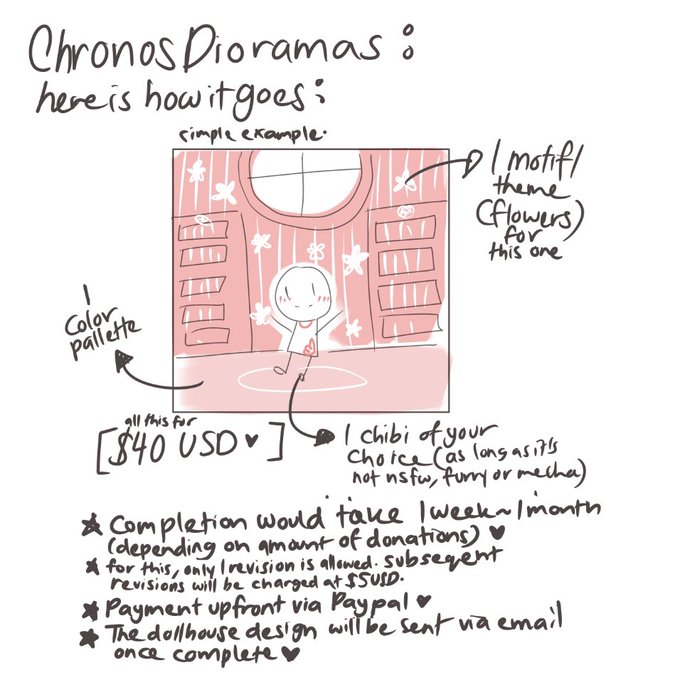 Chronos Dioramas:
here is how it goes:
simple example.
1 motif/
theme
(flowers)
for
this one
1
color
pallette
all this for
[$40 USD ♥]
1 chibi of your
choice (as long as it's
not nsfw, furry or mecha)
★ Completion would take 1 week~1 month
(depending on amount of donations) ♥
★ for this, only 1 revision is allowed. subseqent
revisions will be charged at $5USD.
★ Payment upfront via Paypal ♥
★ The dollhouse design will be sent via email
once complete ♥